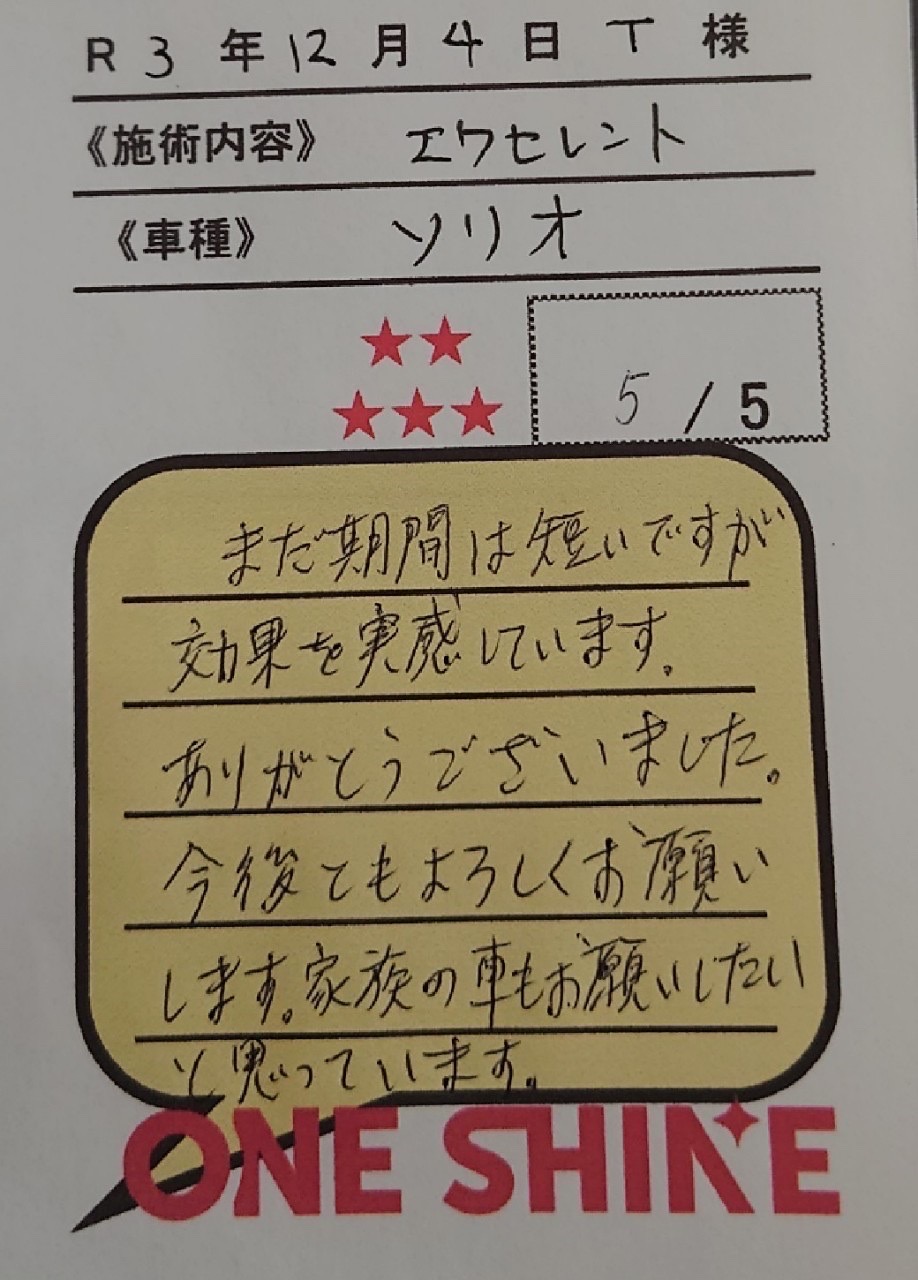 R3年12月4日 T 様
《施術内容》 エクセレント
《車種》 ソリオ
★★
★★★ 5/5
まだ期間は短いですが
効果を実感しています。
ありがとうございました。
今後ともよろしくお願い
します。家族の車もお願いしたい
と思っています。
ONE SHINE